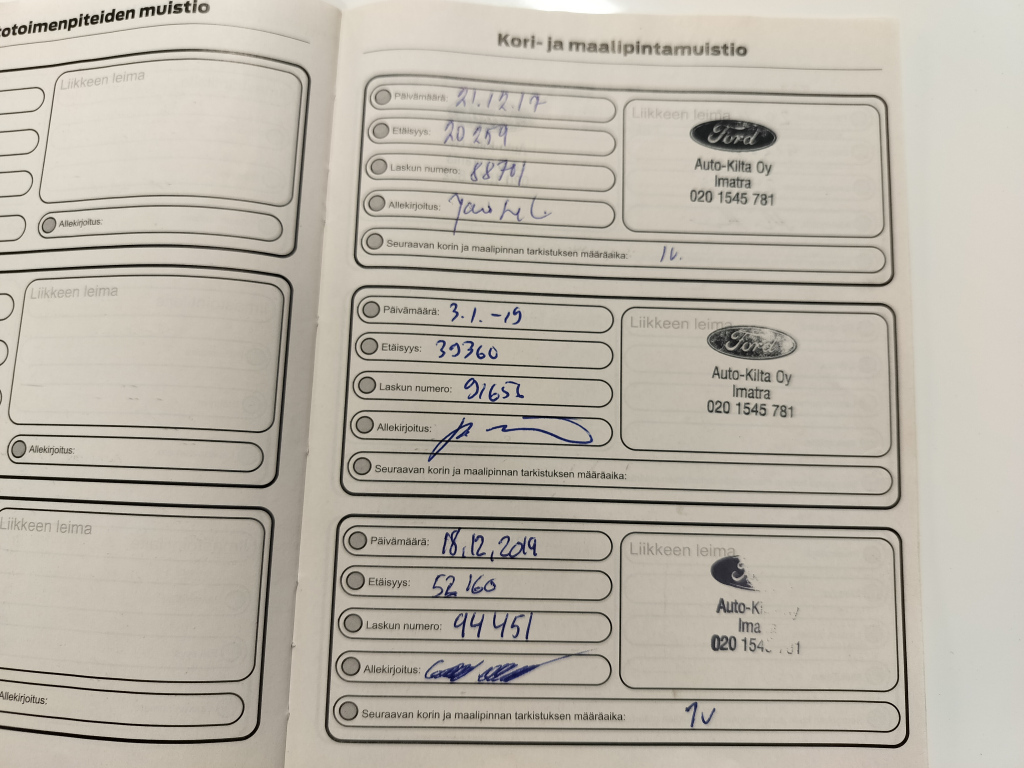 totoimenpiteiden muistio
Liikkeen leima
Allekirjoitus:
Liikkeen leima
Allekirjoitus:
Liikkeen leima
Allekirjoitus:
Kori- ja maalipintamuistio
Päivämäärä: 21.12.17
Etäisyys: 20 259
Laskun numero: 88701
Allekirjoitus:
Seuraavan korin ja maalipinnan tarkistuksen määräaika: 1v.
Liikkeen leima
Ford
Auto-Kilta Oy
Imatra
020 1545 781
Päivämäärä: 3.1.-19
Etäisyys: 39360
Laskun numero: 91653
Allekirjoitus:
Seuraavan korin ja maalipinnan tarkistuksen määräaika:
Liikkeen leima
Ford
Auto-Kilta Oy
Imatra
020 1545 781
Päivämäärä: 18.12.2019
Etäisyys: 52160
Laskun numero: 94451
Allekirjoitus:
Seuraavan korin ja maalipinnan tarkistuksen määräaika: 1v
Liikkeen leima
Auto-K
Ima
020 154